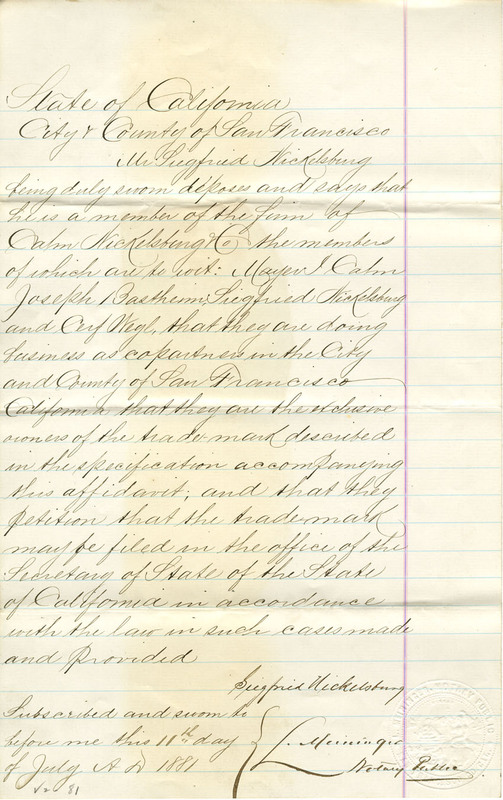 State of California
City & County of San Francisco
Mr. Siegfried Nickelsburg
being duly sworn deposes and says that
he is a member of the firm of
Cahn Nickelsburg & Co the members
of which are to wit: Mayer I. Cahn
Joseph Bastheim, Siegfried Nickelsburg
and Cerf Weyl, that they are doing
business as copartners in the City
and County of San Francisco
California, that they are the exclusive
owners of the trade-mark described
in the specification accompanying
this affidavit; and that they
petition that the trade-mark
may be filed in the office of the
Secretary of State of the State
of California in accordance
with the law in such cases made
and provided
Siegfried Nickelsburg
Subscribed and sworn to
before me this 11th day
of July A D 1881
L. Meininger
Notary Public